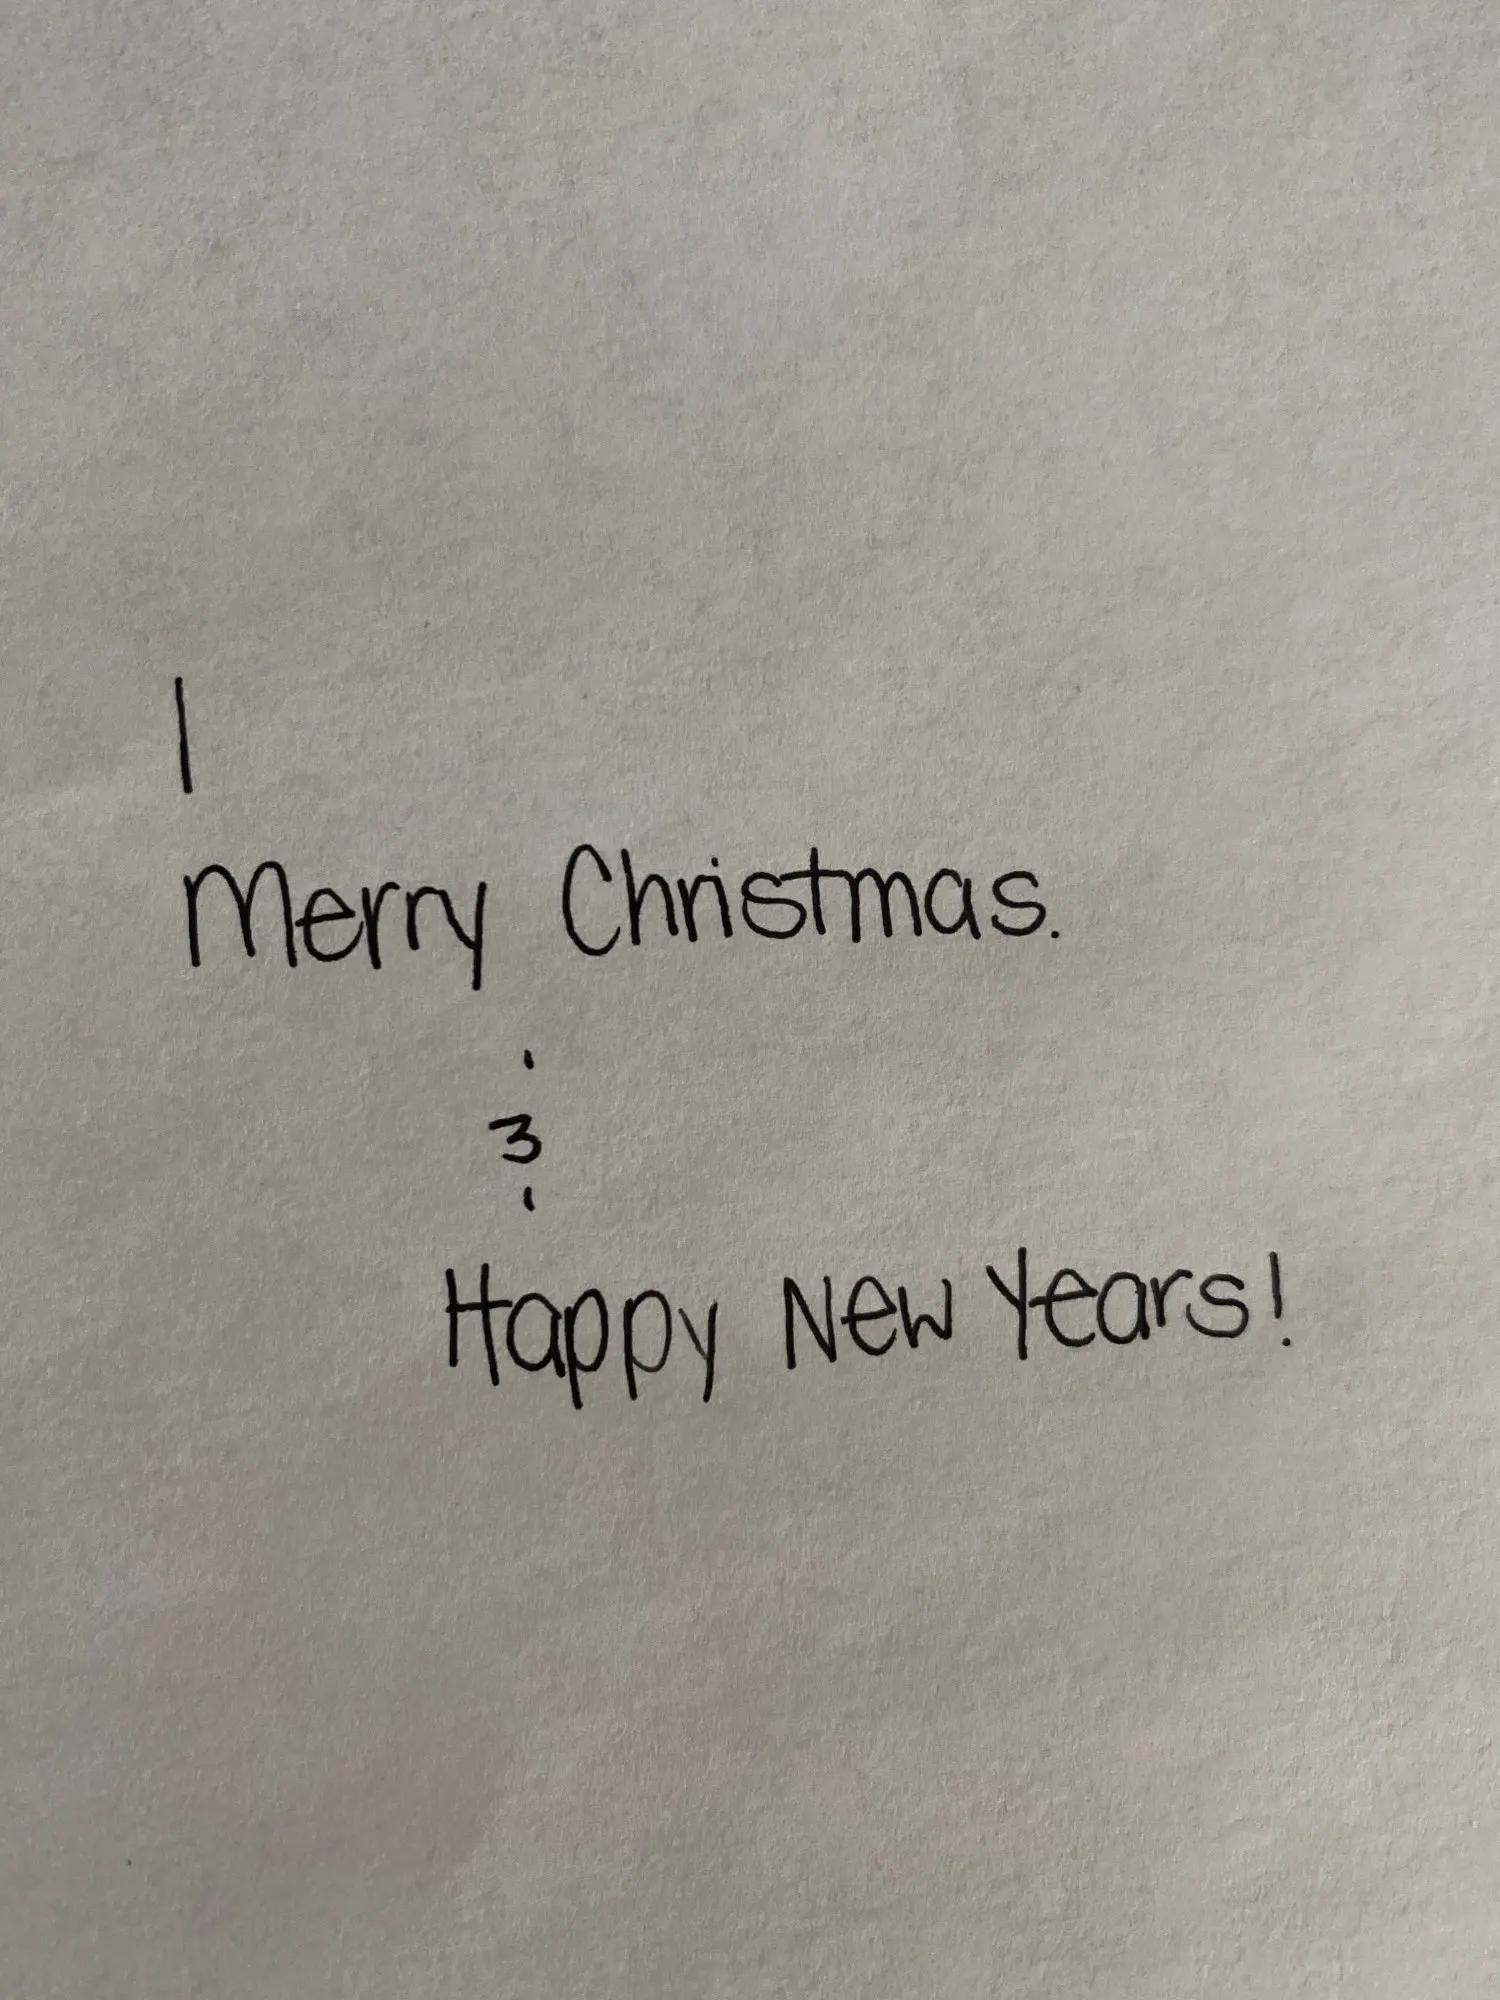 I
Merry Christmas.
&
Happy New Years!